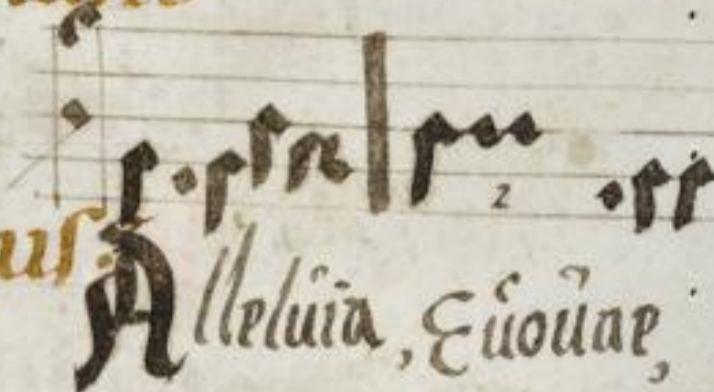 2
us.
Alleluia, Euouae,